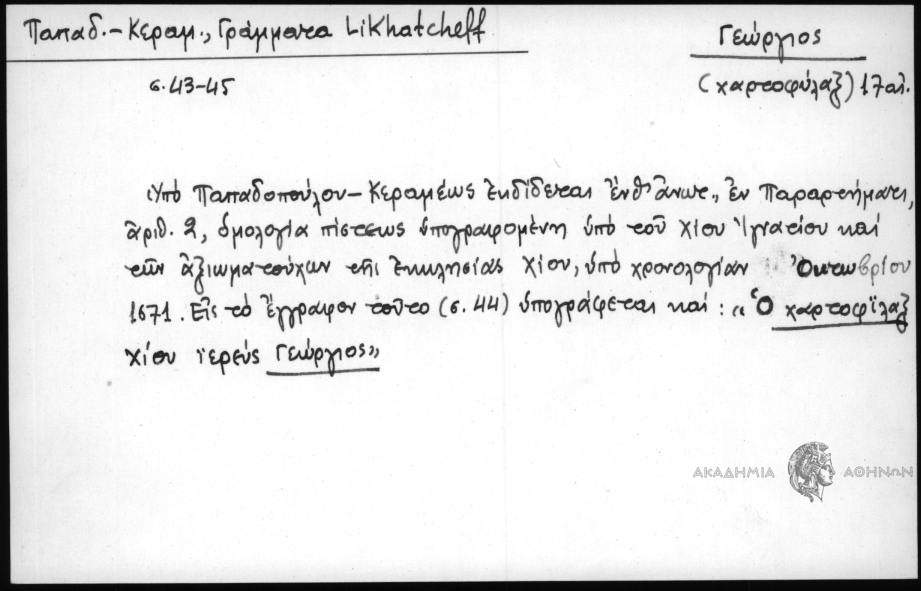 Παπαδ.-Κεραμ., Γράμματα Likhatcheff
Γεώργιος
σ. 43-45
(χαρτοφύλαξ) 17 αι.
Ὑπό Παπαδοπούλου-Κεραμέως ἐκδίδεται ἔνθ' ἄνωτ., ἐν Παραρτήματι,
ἀριθ. 2, ὁμολογία πίστεως ὑπογραφομένη ὑπό τοῦ Χίου Ἰγνατίου καί
τῶν ἀξιωματούχων τῆς ἐκκλησίας Χίου, ὑπό χρονολογίαν Ὀκτωβρίου
1671. Εἰς τό ἔγγραφον τοῦτο (σ. 44) ὑπογράφεται καί: «Ὁ χαρτοφίλαξ
Χίου ἱερεύς Γεώργιος»
ΑΚΑΔΗΜΙΑ ΑΘΗΝΩΝ